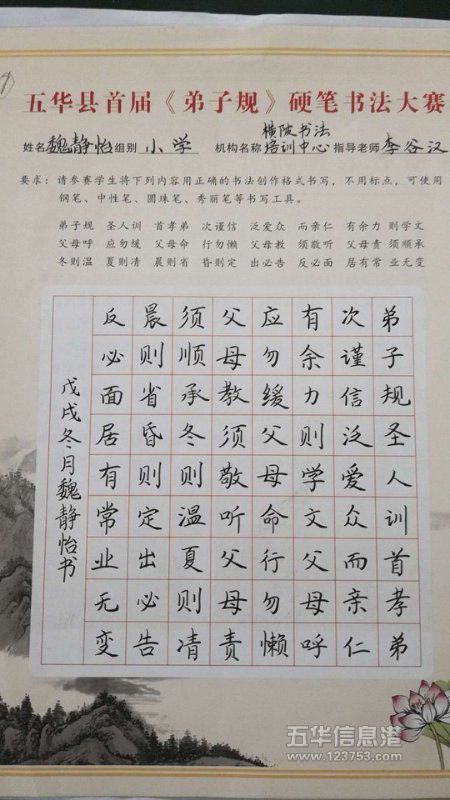 五华县首届《弟子规》硬笔书法大赛
姓名 魏静怡 组别 小学 机构名称 横陂书法培训中心 指导老师 李谷汉
要求：请参赛学生将下列内容用正确的书法创作格式书写，不用标点，可使用
钢笔、中性笔、圆珠笔、秀丽笔等书写工具。
弟子规 圣人训 首孝弟 次谨信 泛爱众 而亲仁 有余力 则学文
父母呼 应勿缓 父母命 行勿懒 父母教 须敬听 父母责 须顺承
冬则温 夏则清 晨则省 昏则定 出必告 反必面 居有常 业无变
弟子规圣人训首孝弟
次谨信泛爱众而亲仁
有余力则学文父母呼
应勿缓父母命行勿懒
父母教须敬听父母责
须顺承冬则温夏则凊
晨则省昏则定出必告
反必面居有常业无变
戊戌冬月魏静怡书
五华信息港
www.123753.com